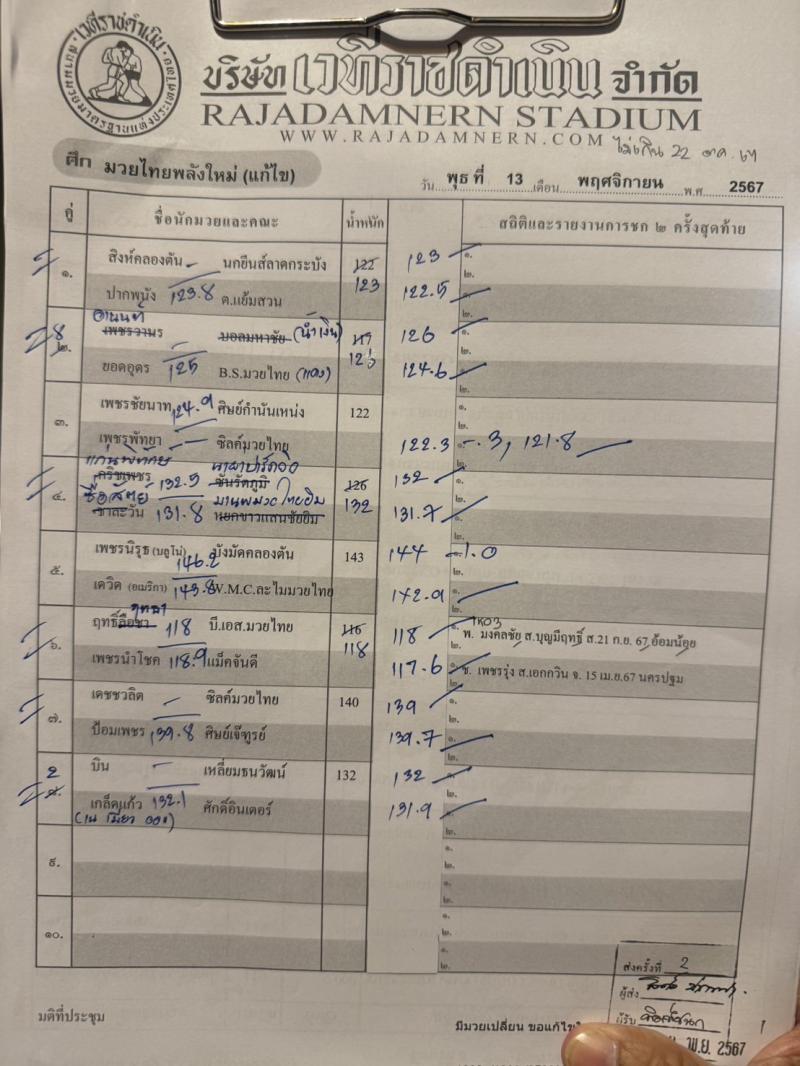 เวทีราชดำเนิน
บริษัท เวทีราชดำเนิน จำกัด
RAJADAMNERN STADIUM
WWW.RAJADAMNERN.COM
ไม่เกิน 22
ศึก มวยไทยพลังใหม่ (แก้ไข)
วัน พุธ ที่ 13 เดือน พฤศจิกายน พ.ศ 2567
คู่ ชื่อนักมวยและคณะ น้ำหนัก สถิติและรายงานการชก ๒ ครั้งสุดท้าย
๑. สิงห์คลองตัน นกยีนส์ลาดกระบัง 122 123 123 ๑.
๒.
ปากพนัง 123.8 ต.แย้มสวน 122.5 ๑.
๒.
อานนท์
8 ๒. เพชรวานร บอลมหาชัย (น้ำเงิน) 126 ๑.
๒.
ยอดอุดร 125 B.S.มวยไทย (แดง) 124.6 ๑.
๒.
๓. เพชรชัยนาท 124.9 ศิษย์กำนันเหน่ง 122 ๑.
๒.
เพชรพัทยา ซิลค์มวยไทย 122.3 - .3, 121.8 ๑.
๒.
แก่นพิทักษ์
๔. 132.5 ชันรัตภูมิ 126 132 132 ๑.
๒.
ซื่อสัตย์
131.8 131.7 ๑.
๒.
๕. เพชรนิรุธ (บลูโน่) 146.2 บังมัดคลองตัน 143 144 - 1.0 ๑.
๒.
เดวิด (อเมริกา) 143.8 W.M.C.ละไมมวยไทย 142.9 ๑.
๒.
๖. ฤทธิ์ลือชา 118 บี.เอส.มวยไทย 116 118 118 ๑. พ. มงคลชัย ส.บุญมีฤทธิ์ ส.21 ก.ย. 67 อ้อมน้อย
๒.
เพชรนำโชค 118.9 แม็คจันดี 117.6 ๑. ช. เพชรรุ่ง ส.เอกกวิน จ. 15 เม.ย.67 นครปฐม
๒.
๗. เดชชวลิต ซิลค์มวยไทย 140 139 ๑.
๒.
ป้อมเพชร 139.8 ศิษย์เจ๊ทูรย์ 139.7 ๑.
๒.
2 ๘. บิน เหลี่ยมธนวัฒน์ 132 132 ๑.
๒.
เกล็ดแก้ว 132.1 ศักดิ์อินเตอร์ 131.9 ๑.
๒.
๙. ๑.
๒.
๑.
๒.
๑๐. ๑.
๒.
๑.
๒.
มติที่ประชุม
มีมวยเปลี่ยน ขอแก้ไข
ส่งครั้งที่ 2
ผู้ส่ง
ผู้รับ
พ.ย. 2567